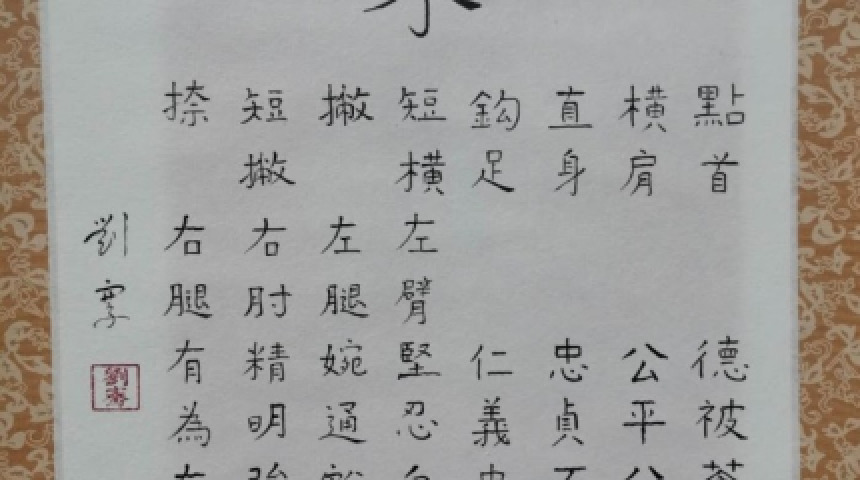 點首 德被
橫肩 公平
直身 忠貞
鈎足 仁義
短橫左臂堅忍
撇 左腿婉通
短撇右肘精明
捺 右腿有為
劉
劉